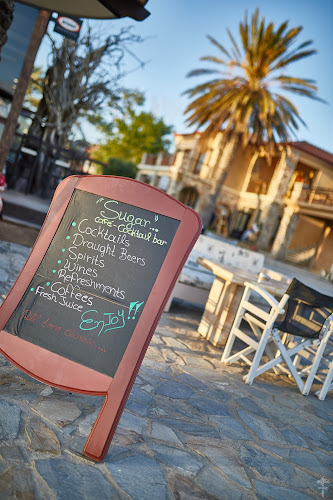 "Sugar"
cafe-Cocktail bar
Cocktails
Draught Beers
Spirits
Wines
Refreshments
Coffees
Fresh Juice
Enjoy!!